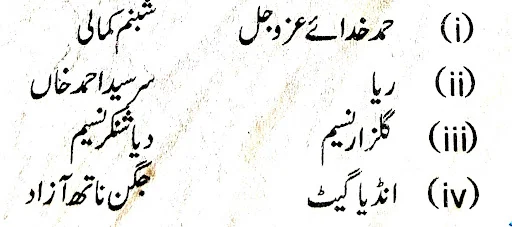 (i) حمد خدائے عزوجل شبنم کمالی
(ii) ریا سرسید احمد خاں
(iii) گلزار نسیم دیا شنکر نسیم
(iv) انڈیا گیٹ جگن ناتھ آزاد